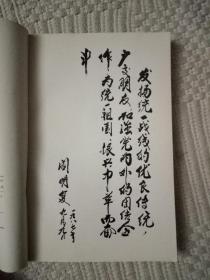 发扬统一战线的优良传统，
广交朋友，加强党内外的团结合
作，为统一祖国，振兴中华而奋
斗
一九八七年
阎明复